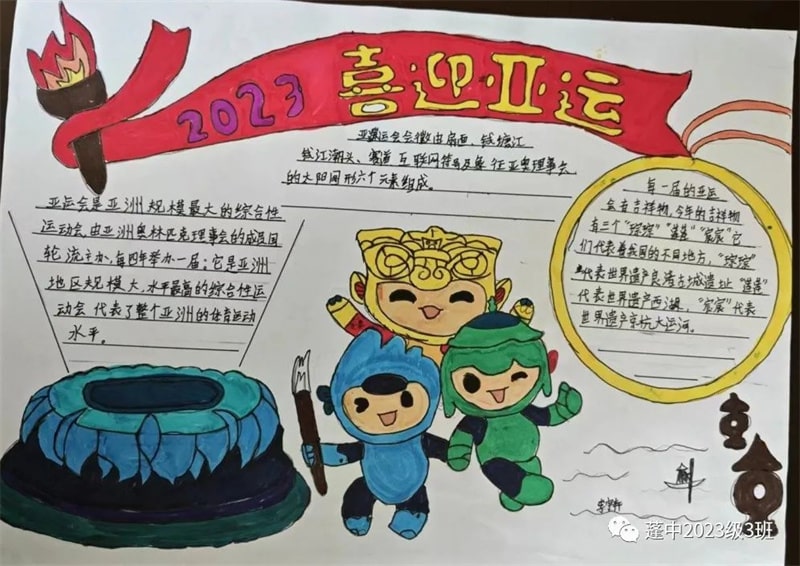 2023 喜迎亚运
亚运会会徽由扇面、钱塘江
钱江潮头、赛道 互联网符号及象征亚奥理事会
的太阳图形六个元素组成。
亚运会是亚洲规模最大的综合性
运动会,由亚洲奥林匹克理事会的成员国
轮流主办,每四年举办一届;它是亚洲
地区规模大、水平最高的综合性运
动会 代表了整个亚洲的体育运动
水平。
每一届的亚运
会有吉祥物,今年的吉祥物
有三个“琮琮”“莲莲”“宸宸”它
们代表着我国的不同地方,“琮琮”
代表世界遗产良渚古城遗址“莲莲”
代表世界遗产西湖,“宸宸”代表
世界遗产京杭大运河。
蓬中2023级3班